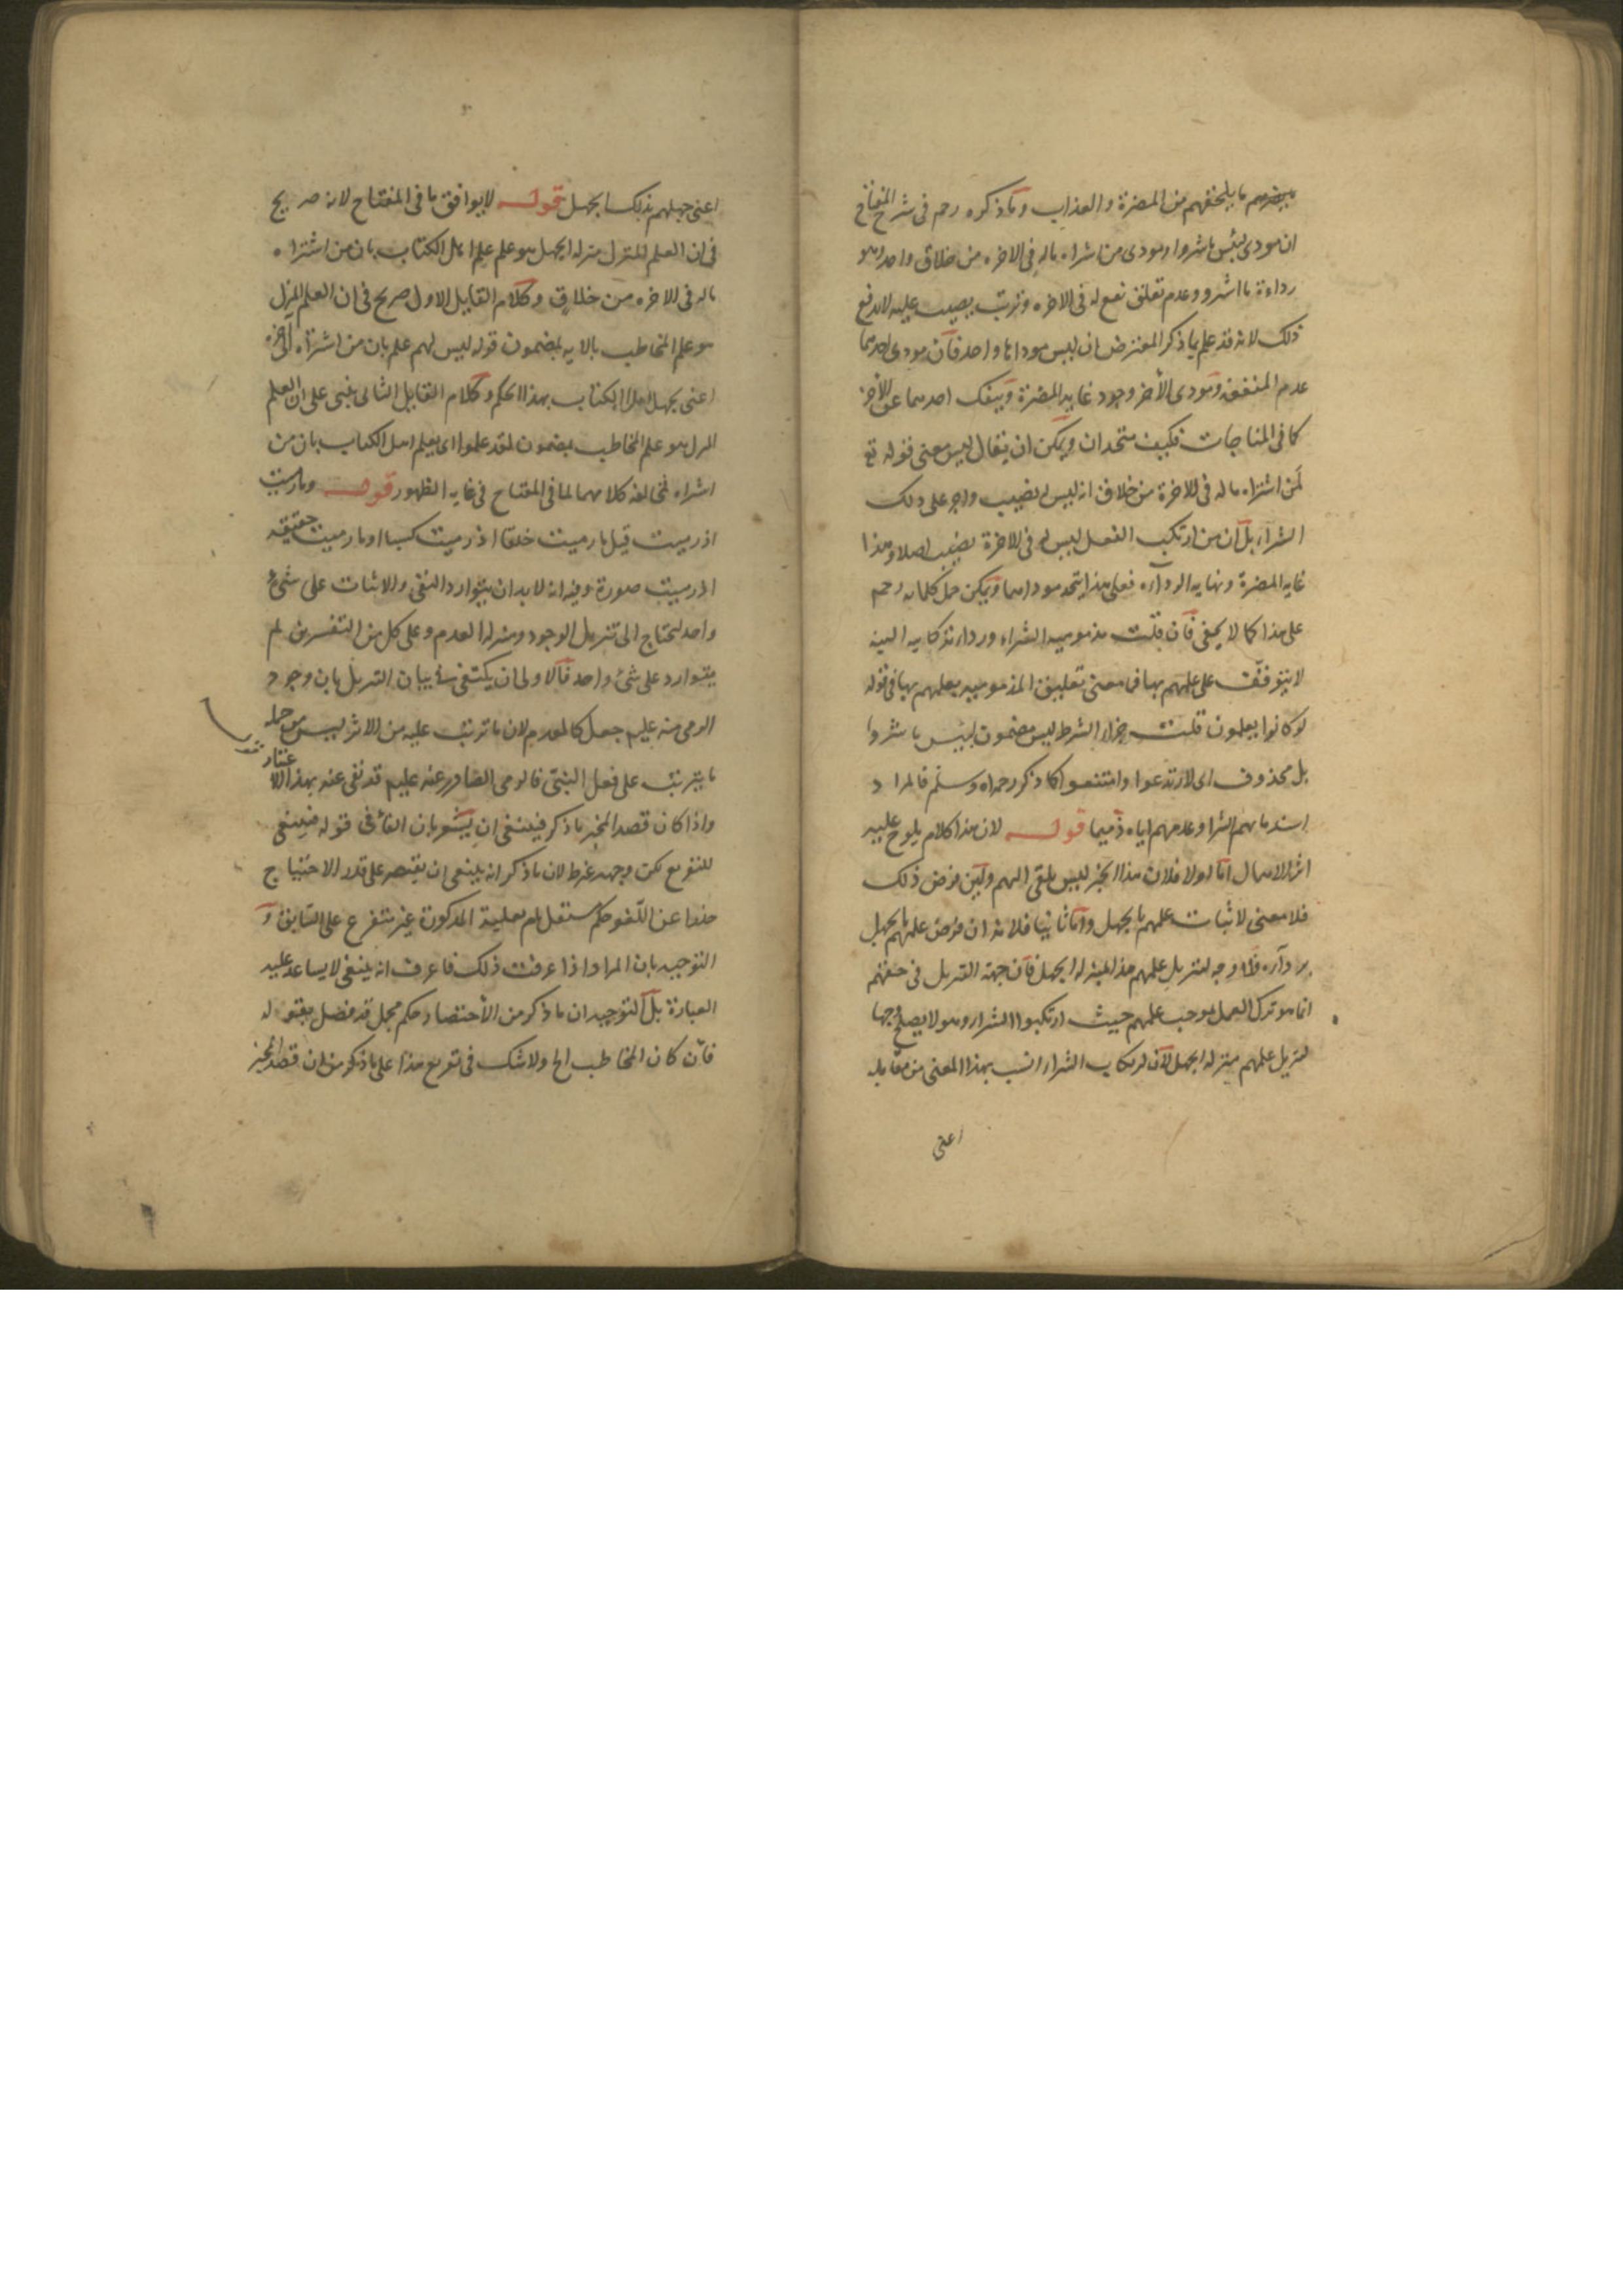 يضرهم ما يلحقهم من المضرة والعذاب وما ذكره رحم في شرح المفتاح
ان مودى لبئس ما شروا ومودى من اشراه ماله في الاخره من خلاق واحد وهو
رداءة ما اشروا وعدم تعلق نفع له في الاخره وترتب عليه لا يدفع
ذلك لانه قد علم بما ذكر المعترض ان ليس موداهما واحد فان مودى احدهما
عدم المنفعة ومودى الاخر وجود غايه المضرة وينفك احدهما عن الاخر
كما في المباحات فكيف متحدان ويمكن ان يقال ليس معنى قوله تع
لمن اشتراه ماله في الاخرة من خلاق انه ليس له نصيب واجر على ذلك
الشراء بل ان من ارتكب الفعل ليس له في الاخرة نصيب اصلا وهذا
غايه المضرة ونهايه الرداءه فعلى هذا يتحد موداهما ويمكن حمل كلامه رحم
على هذا كما لا يخفى فان قلت مذموميه الشراء ورداءته كاينه البته
لا يتوقف على علمهم بها فما معنى تعليق المذموميه بعلمهم بها في قوله
لو كانوا يعلمون قلت جزاء الشرط ليس مضمون لبئس ما شروا
بل محذوف اى لارتدعوا وامتنعوا كما ذكر رحمه الله وسلم فالمراد
استدمامهم الشرا وعدهم اياه ذميما قوله لان هذا كلام يلوح عليه
اثر الاهمال اما اولا فلان هذا الخبر ليس يلقى اليهم ولئن فرض ذلك
فلا معنى لاثبات علمهم بالجهل واما ثانيا فلانه ان فرض علمهم بالجهل
برداءه فلا وجه لتنزيل علمهم هذا منزله الجهل فان جهة التنزيل في حقهم
انما هو ترك العمل بموجب علمهم حيث ارتكبوا الشراء وهو لا يصلح وجها
لتنزيل علمهم منزله الجهل لان ارتكاب الشراء انسب بهذا المعنى من مقابله
اعنى
اعنى جهلهم بذلك الجهل قوله لا يوافق ما في المفتاح لانه صريح
في ان العلم المنزل منزله الجهل هو علم علم اهل الكتاب بان من اشتراه
ماله في الاخره من خلاق وكلام القايل الاول صريح في ان العلم المنزل
هو علم المخاطب بالايه لمضمون قوله ليس لهم علم بان من اشتراه الى اخره
اعنى بجهل اهل الكتاب بهذا الحكم وكلام القايل الثانى يبنى على ان العلم
المنزل هو علم المخاطب بمضمون لقد علموا اى يعلم اهل الكتاب بان من
اشراه فمخالفه كلامهما لما في المفتاح في غايه الظهور قوله وما رميت
اذ رميت قيل ما رميت خلقا اذ رميت كسبا او ما رميت حقيقه
اذ رميت صورة وفيه انه لا بد ان يتوارد النفى والاثبات على شئ
واحد ليحتاج الى تنزيل الوجود منزله العدم وعلى كل من التفسيرين لم
يتوارد على شئ واحد فالاولى ان يكتفى في بيان التنزيل بان وجود
الرمى منه عليم جعل كالمعدوم لان ما ترتب عليه من الاثر ليس من جمله
ما يترتب على فعل البشر فالرمى الصادر عنه عليم قد نفى عنه بهذا الاعتبار
واذا كان قصد المخبر ما ذكر فينبغى ان يشعر بان الفاء في قوله فينبغى
للتفريع لكن وجهه غير ظ لان ما ذكر انه ينبغى ان يقتصر على قدر الاحتياج
حذرا عن اللغو حكم مستقل المذكورة غير متفرع على السابق و
التوجيه بان المراد اذا عرفت ذلك فاعرف انه ينبغى لا يساعد عليه
العبارة بل التوجيه ان ما ذكر من الاقتصار حكم مجمل قد فصل بقوله
فان كان المخاطب الخ ولا شك في تفريع هذا على ما ذكر من ان قصد المخبر